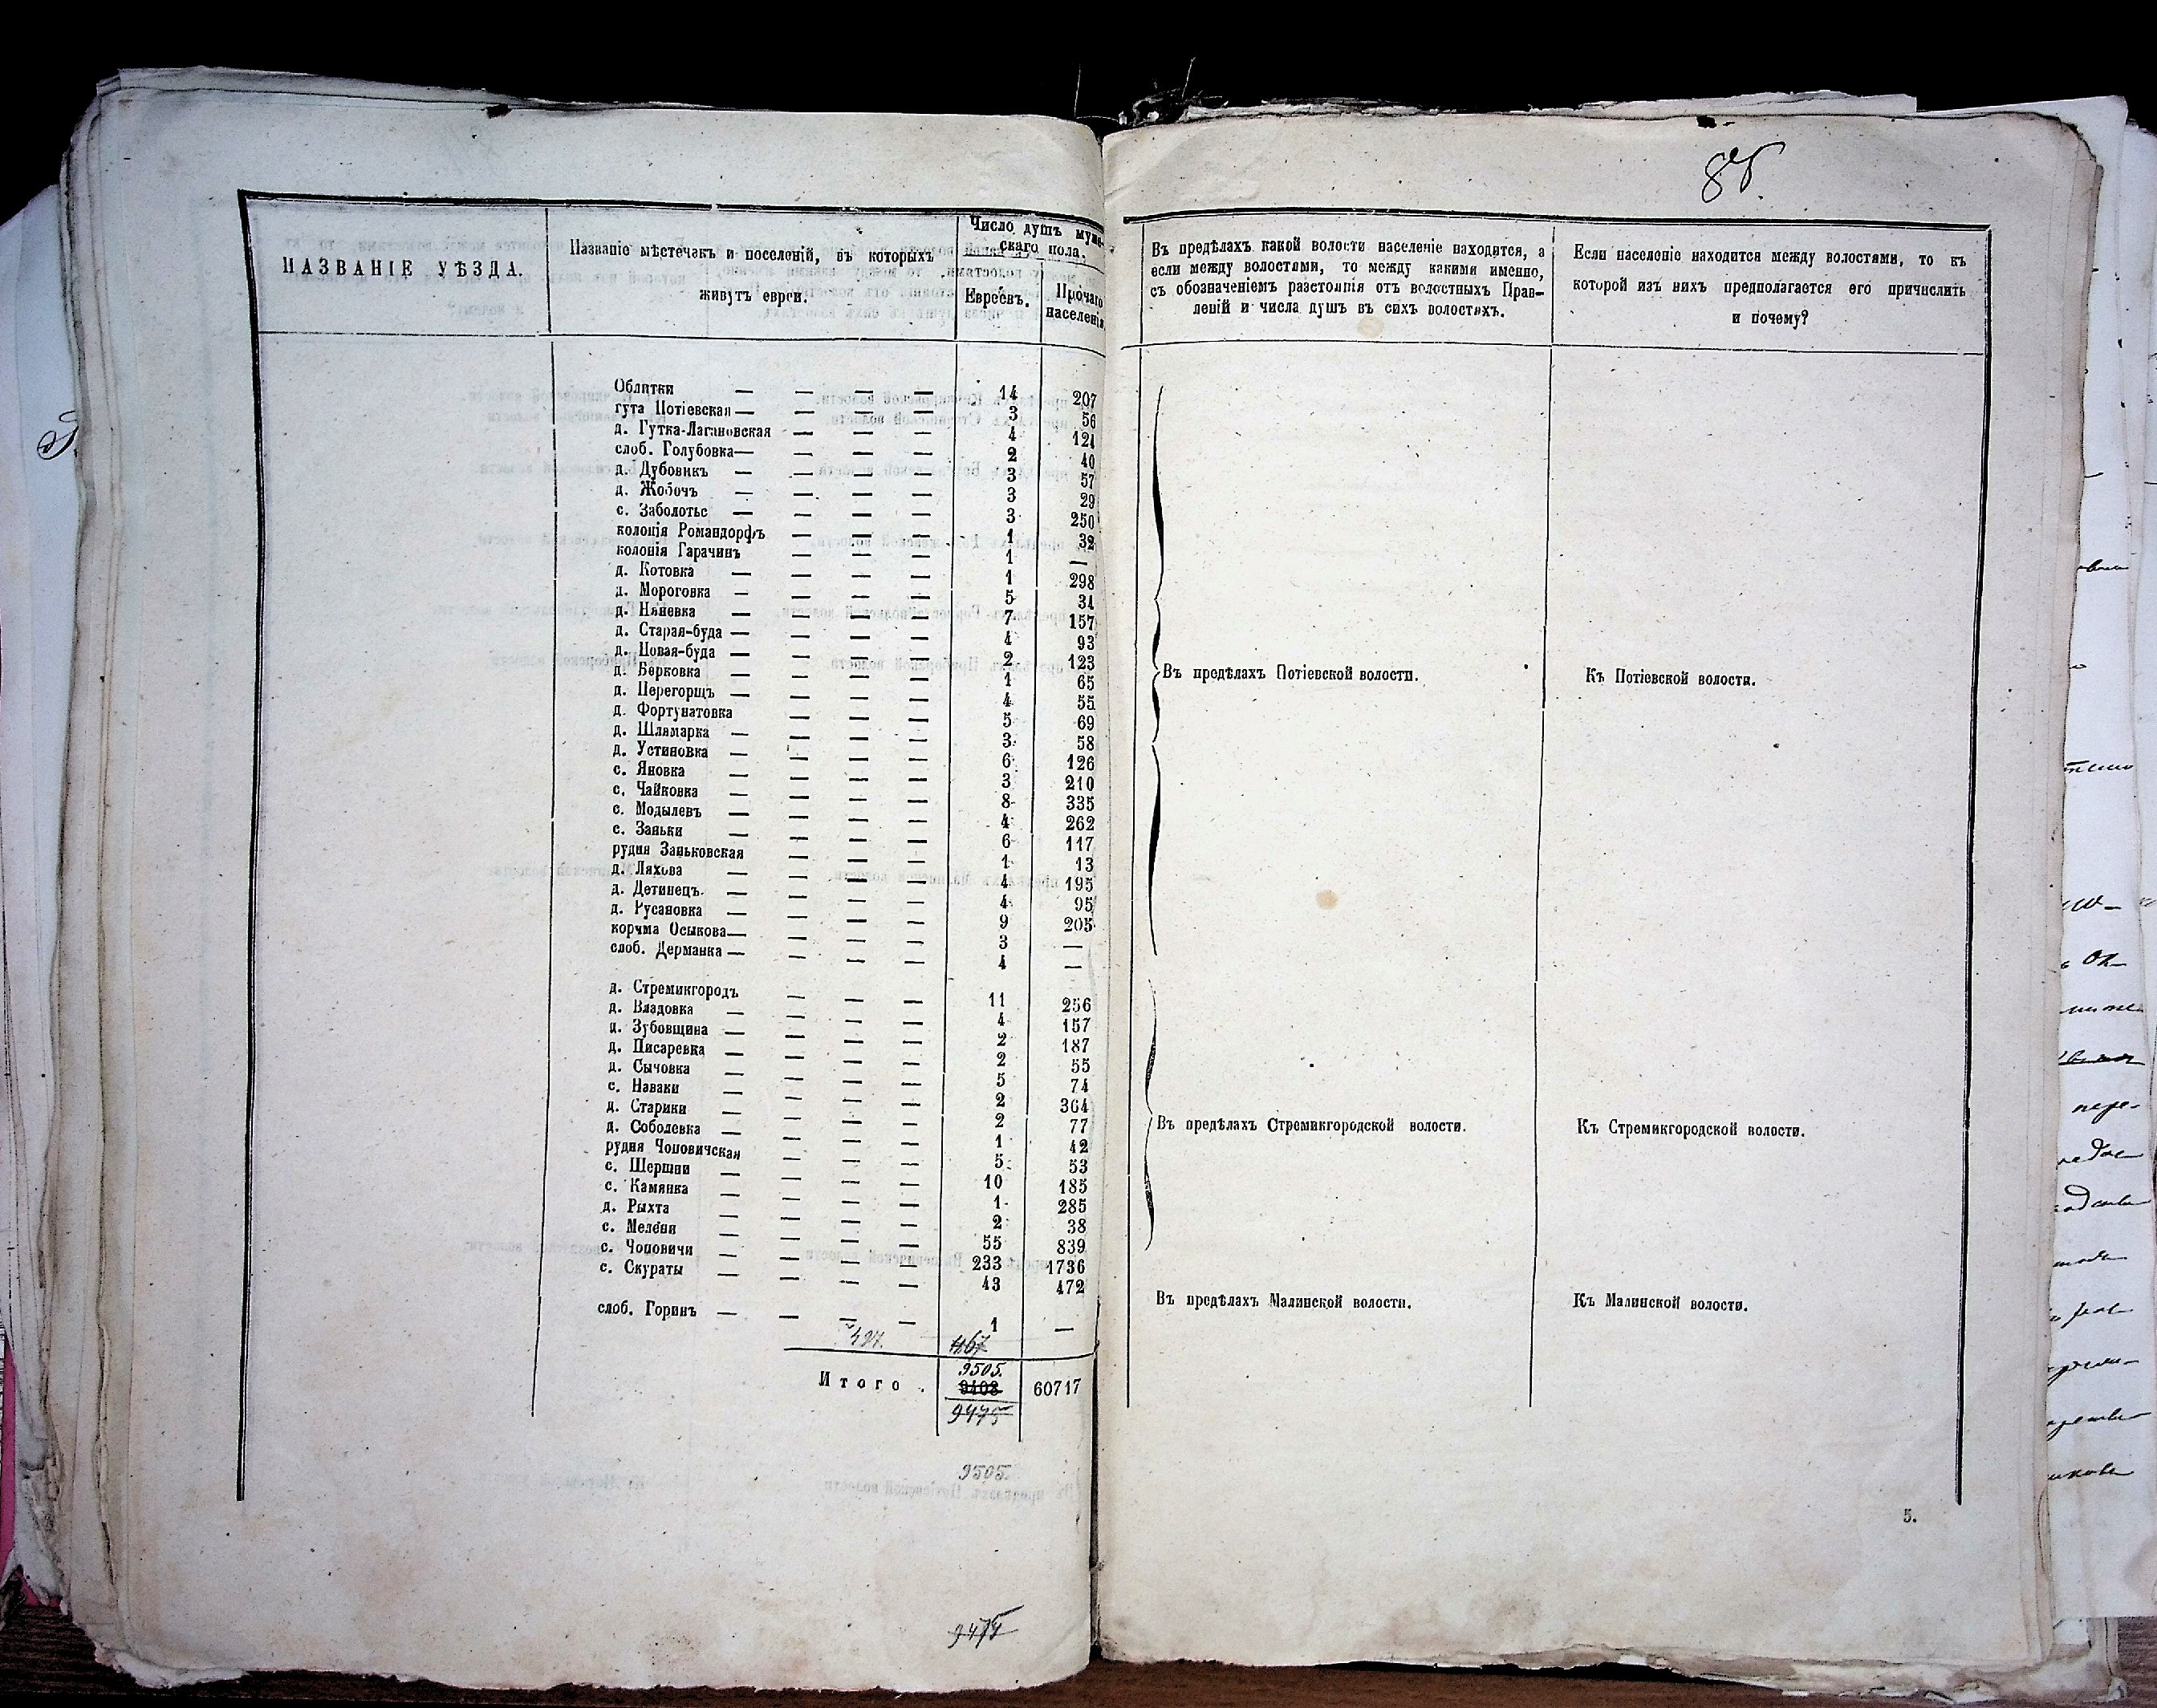 85
НАЗВАНІЕ УѢЗДА.
Названіе мѣстечакъ и поселеній, въ которыхъ
живутъ евреи.
Число душъ муже-
скаго пола.
Евреевъ.
Прочаго
населенія.
Въ предѣлахъ какой волости населеніе находится, а
если между волостями, то между какими именно,
съ обозначеніемъ разстоянія отъ волостныхъ Прав-
леній и числа душъ въ сихъ волостяхъ.
Если населеніе находится между волостями, то къ
которой изъ нихъ предполагается его причислить
и почему?
Облитки — — — — 14 207
гута Потіевская — — — — 3 56
д. Гутка-Лагановская — — — 4 121
слоб. Голубовка — — — — 2 40
д. Дубовикъ — — — — 3 57
д. Жобочъ — — — — 3 29
с. Заболотье — — — — 3 250
колонія Романдорфъ — — — 1 32
колонія Гарачинъ — — — 1 —
д. Котовка — — — — 1 298
д. Мороговка — — — — 5 34
д. Няневка — — — — 7 157
д. Старая-буда — — — — 4 93
д. Новая-буда — — — — 2 123
д. Берковка — — — — 1 65
д. Перегорщъ — — — — 4 55
д. Фортунатовка — — — 5 69
д. Шлямарка — — — — 3 58
д. Устиновка — — — — 6 126
с. Яновка — — — — 3 210
с. Чайковка — — — — 8 335
с. Модылевъ — — — — 4 262
с. Заньки — — — — 6 117
рудня Заньковская — — — 1 13
д. Ляхова — — — — 4 195
д. Детинецъ — — — — 4 95
д. Русановка — — — — 9 205
корчма Осыкова — — — — 3 —
слоб. Дерманка — — — — 4 —
Въ предѣлахъ Потіевской волости.
Къ Потіевской волости.
д. Стремикгородъ — — — 11 256
д. Владовка — — — — 4 157
д. Зубовщина — — — — 2 187
д. Писаревка — — — — 2 55
д. Сычовка — — — — 5 74
с. Наваки — — — — 2 364
д. Старики — — — — 2 77
д. Соболевка — — — — 1 42
рудня Чоповичская — — — 5 53
с. Шершни — — — — 10 185
с. Камянка — — — — 1 285
д. Рыхта — — — — 2 38
с. Мелени — — — — 55 839
с. Чоповичи — — — — 233 1736
с. Скураты — — — — 43 472
Въ предѣлахъ Стремикгородской волости.
Къ Стремикгородской волости.
слоб. Горинъ — — — — 1 —
Въ предѣлахъ Малинской волости.
Къ Малинской волости.
467
9505.
Итого . 9408 60717
9475
9505.
9475
5.